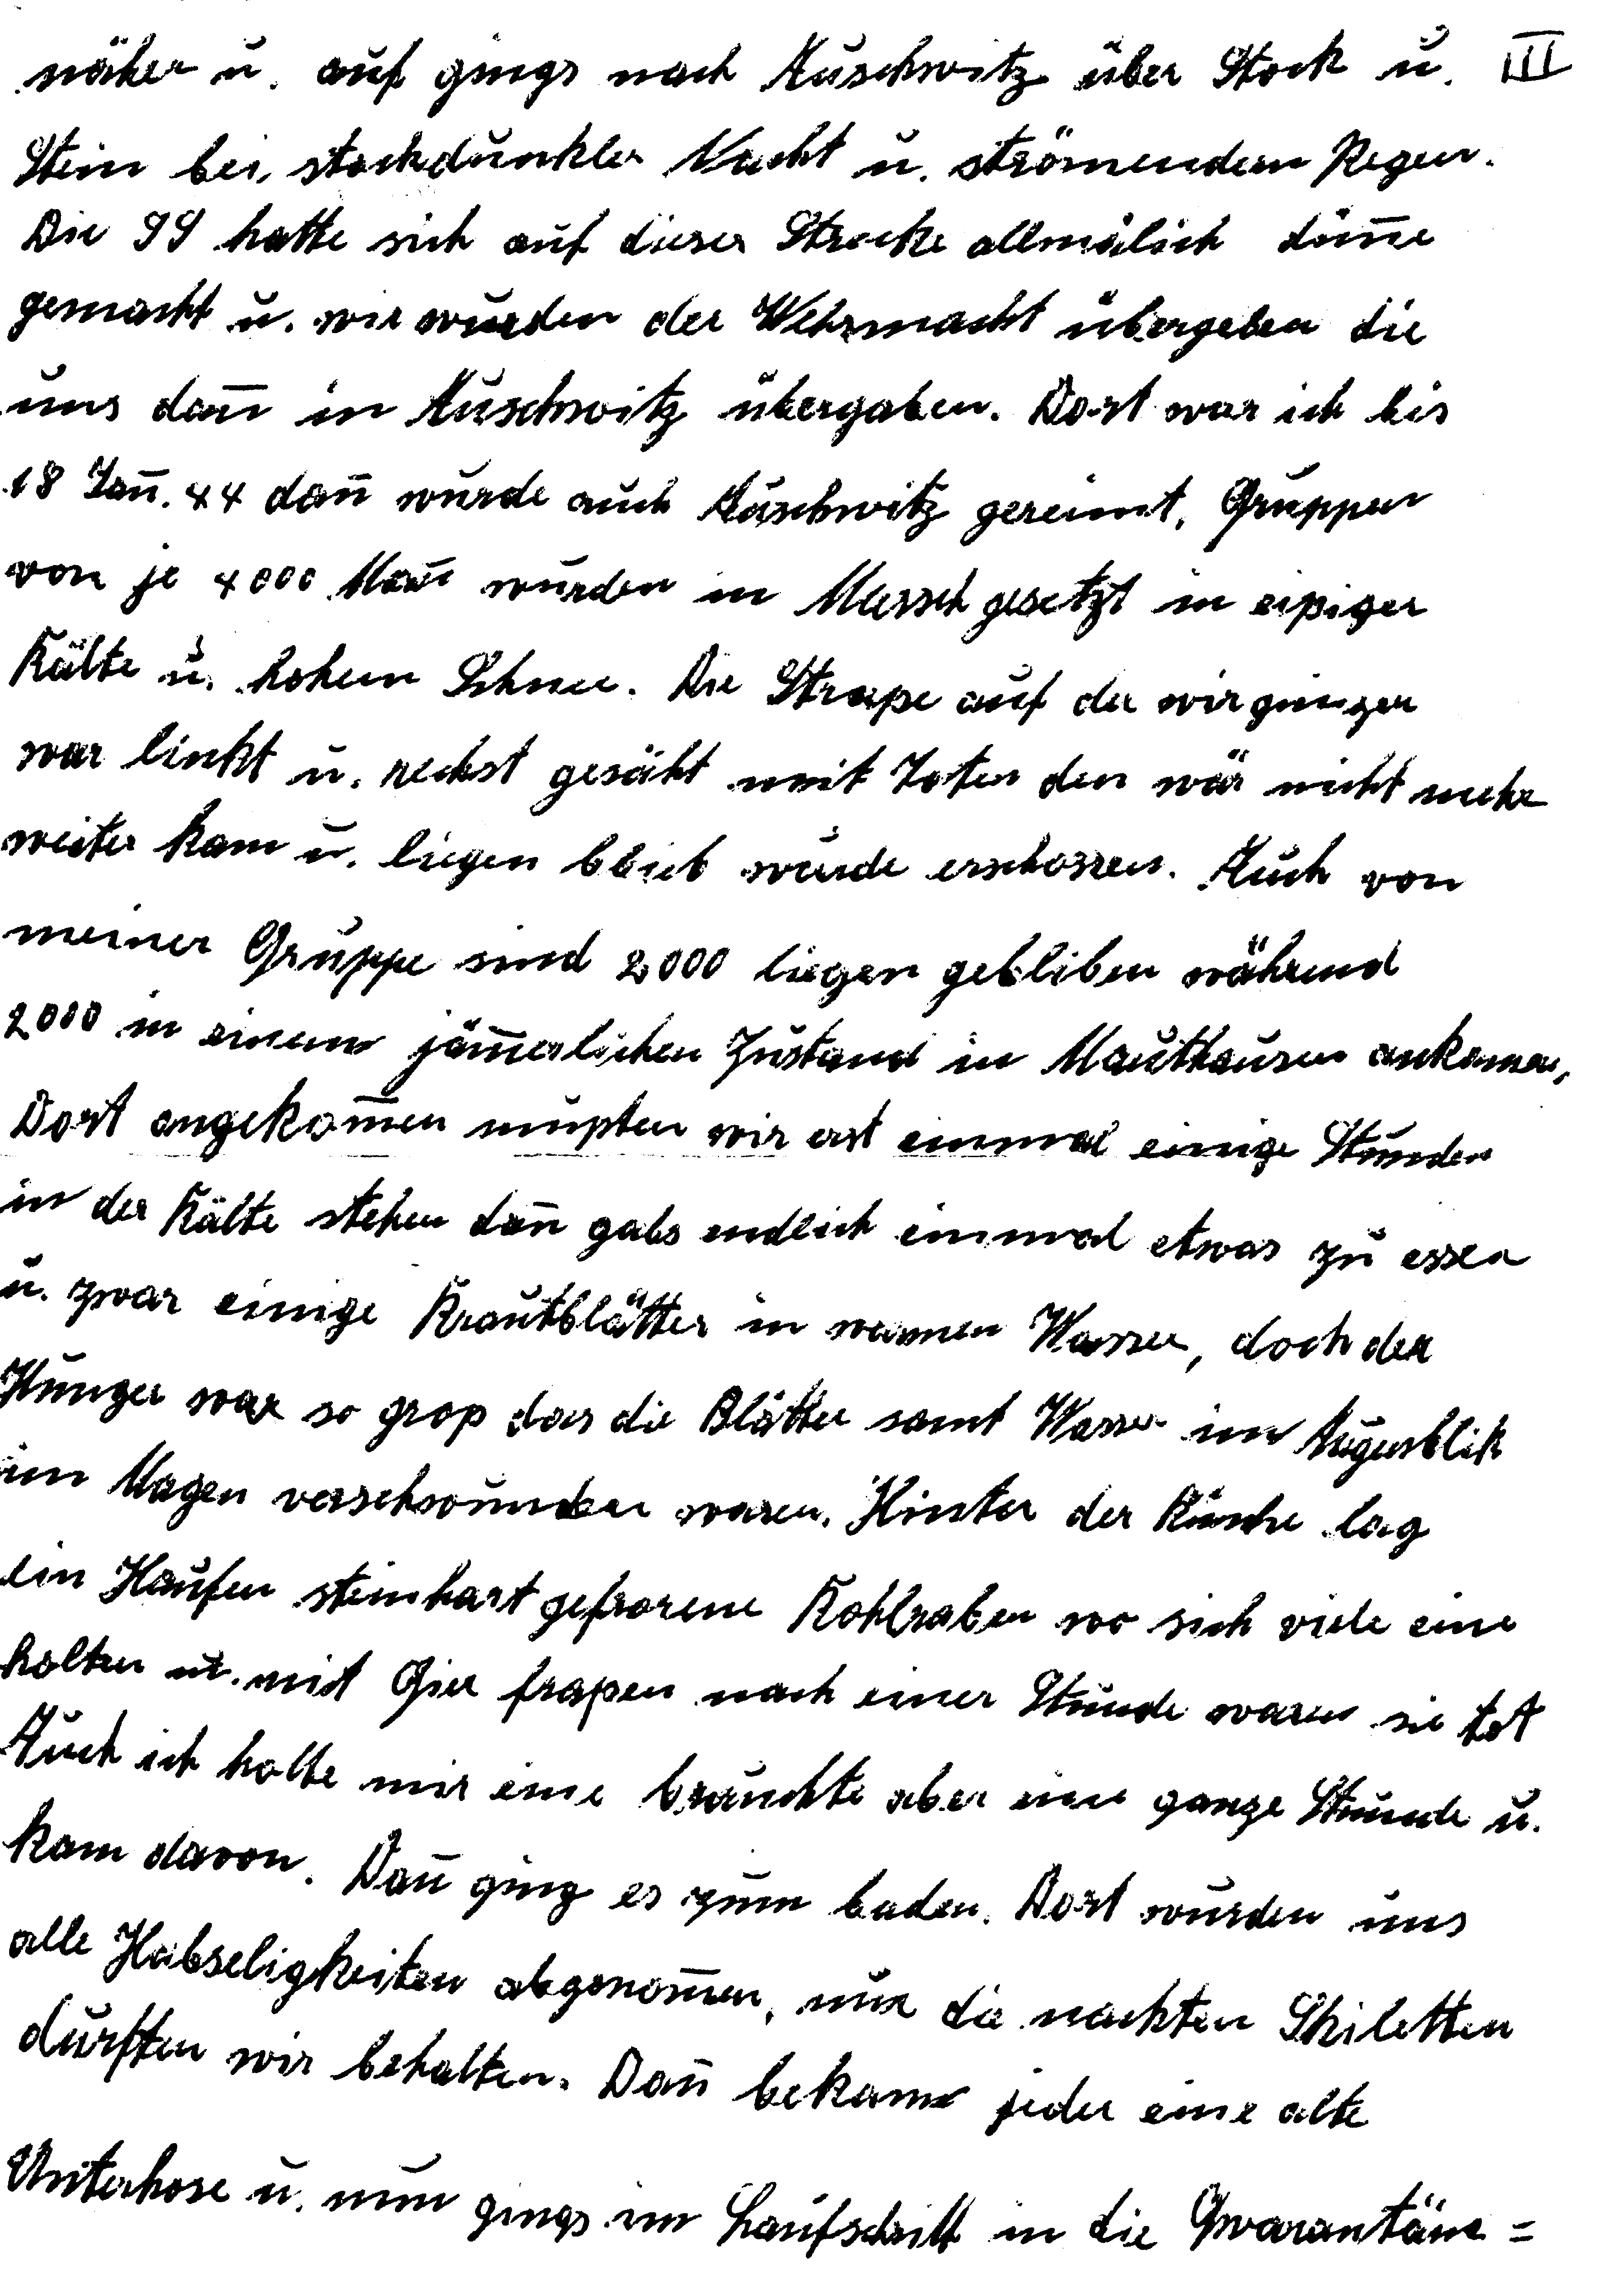 näher u. auf gings nach Auschwitz über Stock u. III
Stein bei stockdunkler Nacht u. strömendem Regen.
Die SS hatte sich auf dieser Strecke allmälich dün̄e
gemacht u. wir wurden der Wehrmacht übergeben die
uns dan̄ in Auschwitz übergaben. Dort war ich bis
18 Jan̄. 44 dan̄ wurde auch Auschwitz gereimt. Gruppen
von je 4000 Man̄ wurden in Marsch gesetzt in eißiger
Kälte u. hohem Schnee. Die Straße auf der wir gingen
war linkt u. rechst gesäht mit Toten den wär nicht mehr
weiter kam u. liegen blieb wurde erschossen. Auch von
meiner Gruppe sind 2000 liegen gebliben während
2000 in einem jäm̄erlichen Zustand in Mauthausen ankamen,
Dort angekom̄en mußten wir erst einmal einige Stunden
in der Kälte stehen dan̄ gabs endlich einmal etwas zu essen
u. zwar einige Krautblätter in warmen Wasser, doch der
Hunger war so groß das die Blätter samt Wasser im Augenblik
im Magen verschwunden waren. Hinter der Küche lag
ein Haufen steinhart gefrorene Kohlraben wo sich viele eine
holten u. mit Gier fraßen nach einer Stunde waren sie tot
Auch ich holte mir eine brauchte aber eine ganze Stunde u.
kam davon. Dan̄ ging es zum baden. Dort wurden uns
alle Habseligkeiten abgenom̄en, nur die nackten Skiletten
durften wir behalten. Dan̄ bekam jeder eine alte
Unterhose u. nun gings im Laufschritt in die Qwarantäne =